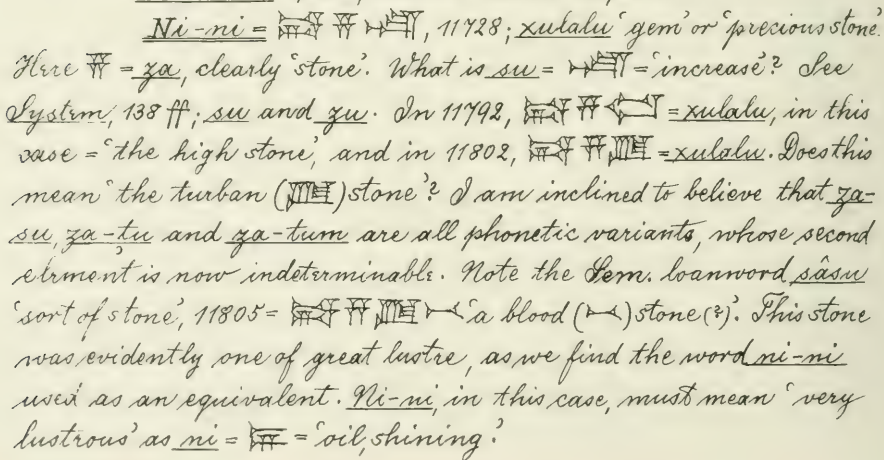 Ni-ni = 𒉌 𒍝 𒋤, 11728; xulalu ‘gem’ or ‘precious stone’.
Here 𒍝 = za, clearly ‘stone’. What is su = 𒋤 = ‘increase’? See
System, 138 ff; su and zu. In 11792, 𒍝 = xulalu, in this
case = ‘the high stone’, and in 11802, 𒍝 = xulalu. Does this
mean ‘the turban () stone’? I am inclined to believe that za-
su, za-tu and za-tum are all phonetic variants, whose second
element is now indeterminable. Note the Sem. loanword sâsu
‘sort of stone’, 11805 = 𒍝 𒁁 ‘a blood (𒁁) stone (?)’. This stone
was evidently one of great lustre, as we find the word ni-ni
used as an equivalent. Ni-ni, in this case, must mean ‘very
lustrous’ as ni = 𒉌 = ‘oil, shining’.